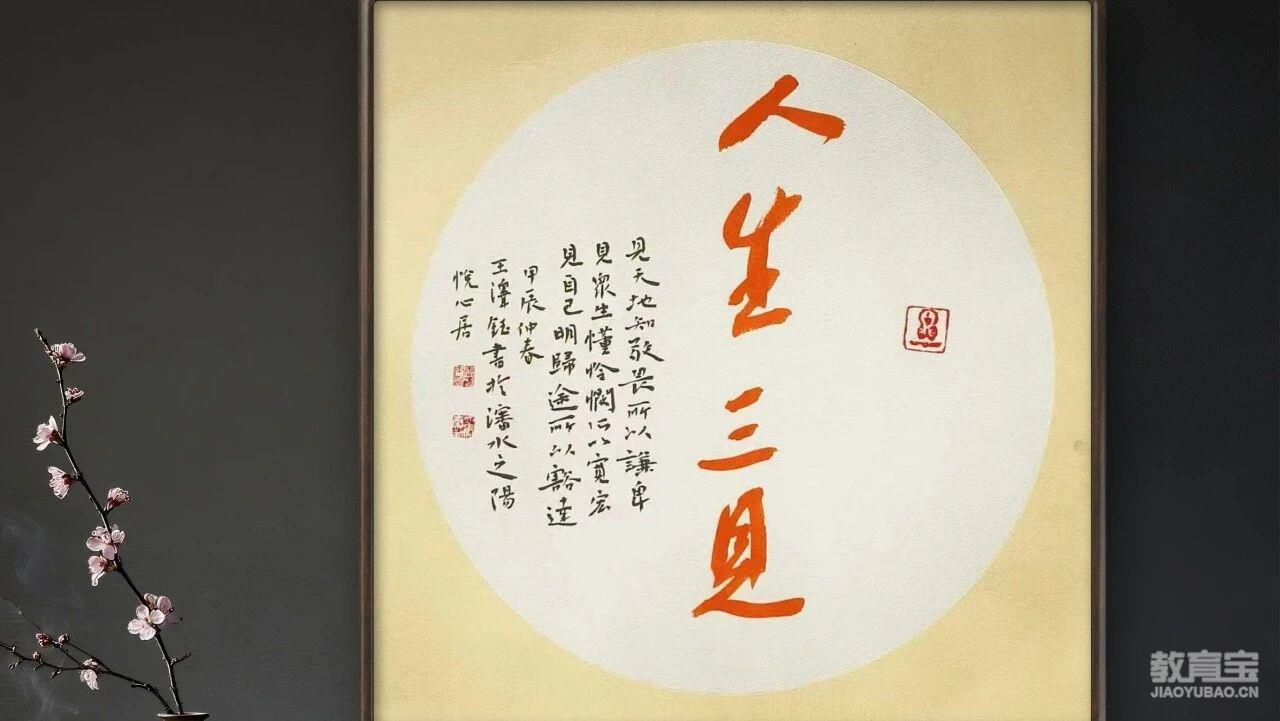 人生三見
見天地知敬畏所以謙卑
見眾生懂憐憫所以寬宏
見自己明歸途所以豁達
甲辰仲春
王澤鈺書於瀋水之陽
悅心居
教育宝
JIAOYUBAO.CN